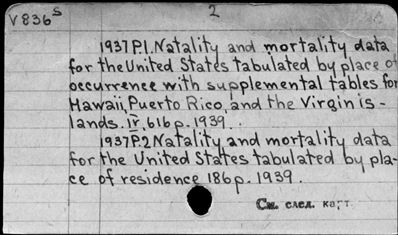 V836s 2
1937 P1. Natality and mortality data
for the United States tabulated by place of
occurrence with supplemental tables for
Hawaii, Puerto Rico, and the Virgin is-
lands. IV, 616 p. 1939.
1937 P.2 Natality and mortality data
for the United States tabulated by pla-
ce of residence 186 p. 1939.
См. след. карт.